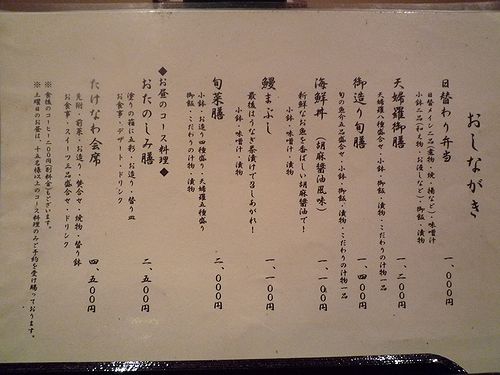 おしながき
日替わり弁当　一、〇〇〇円
日替メイン二品(煮物・焼・揚など)・味噌汁
小鉢二品(和え物・お浸しなど)・御飯・漬物
天婦羅御膳　一、二〇〇円
天婦羅八種盛合せ・小鉢・御飯・漬物・こだわりの汁物一品
御造り旬膳　一、四〇〇円
旬の魚介五品盛合せ・小鉢・御飯・漬物・こだわりの汁物一品
海鮮丼　(胡麻醤油風味)　一、一〇〇円
新鮮なお魚を香ばしい胡麻醤油で！
小鉢・味噌汁・漬物
鰻まぶし　一、一〇〇円
最後はうなぎ茶漬けで召しあがれ！
小鉢・味噌汁・漬物
旬菜膳　二、〇〇〇円
小鉢・お造り四種盛り・天婦羅五種盛り
御飯・こだわりの汁物・漬物
◆お昼のコース料理◆
おたのしみ膳　二、五〇〇円
塗りの箱に五彩・お造り・替り皿
お食事・デザート・ドリンク
たけなわ会席　四、五〇〇円
先附・前菜・お造り・焚合せ・焼物・替り鉢
お食事・スイーツ五品盛合せ・ドリンク
※ 食後のコーヒー二〇〇円(別料金)もございます。
※ 土曜日のお昼は、十五名様以上のコース料理のみご予約を受け賜っております。